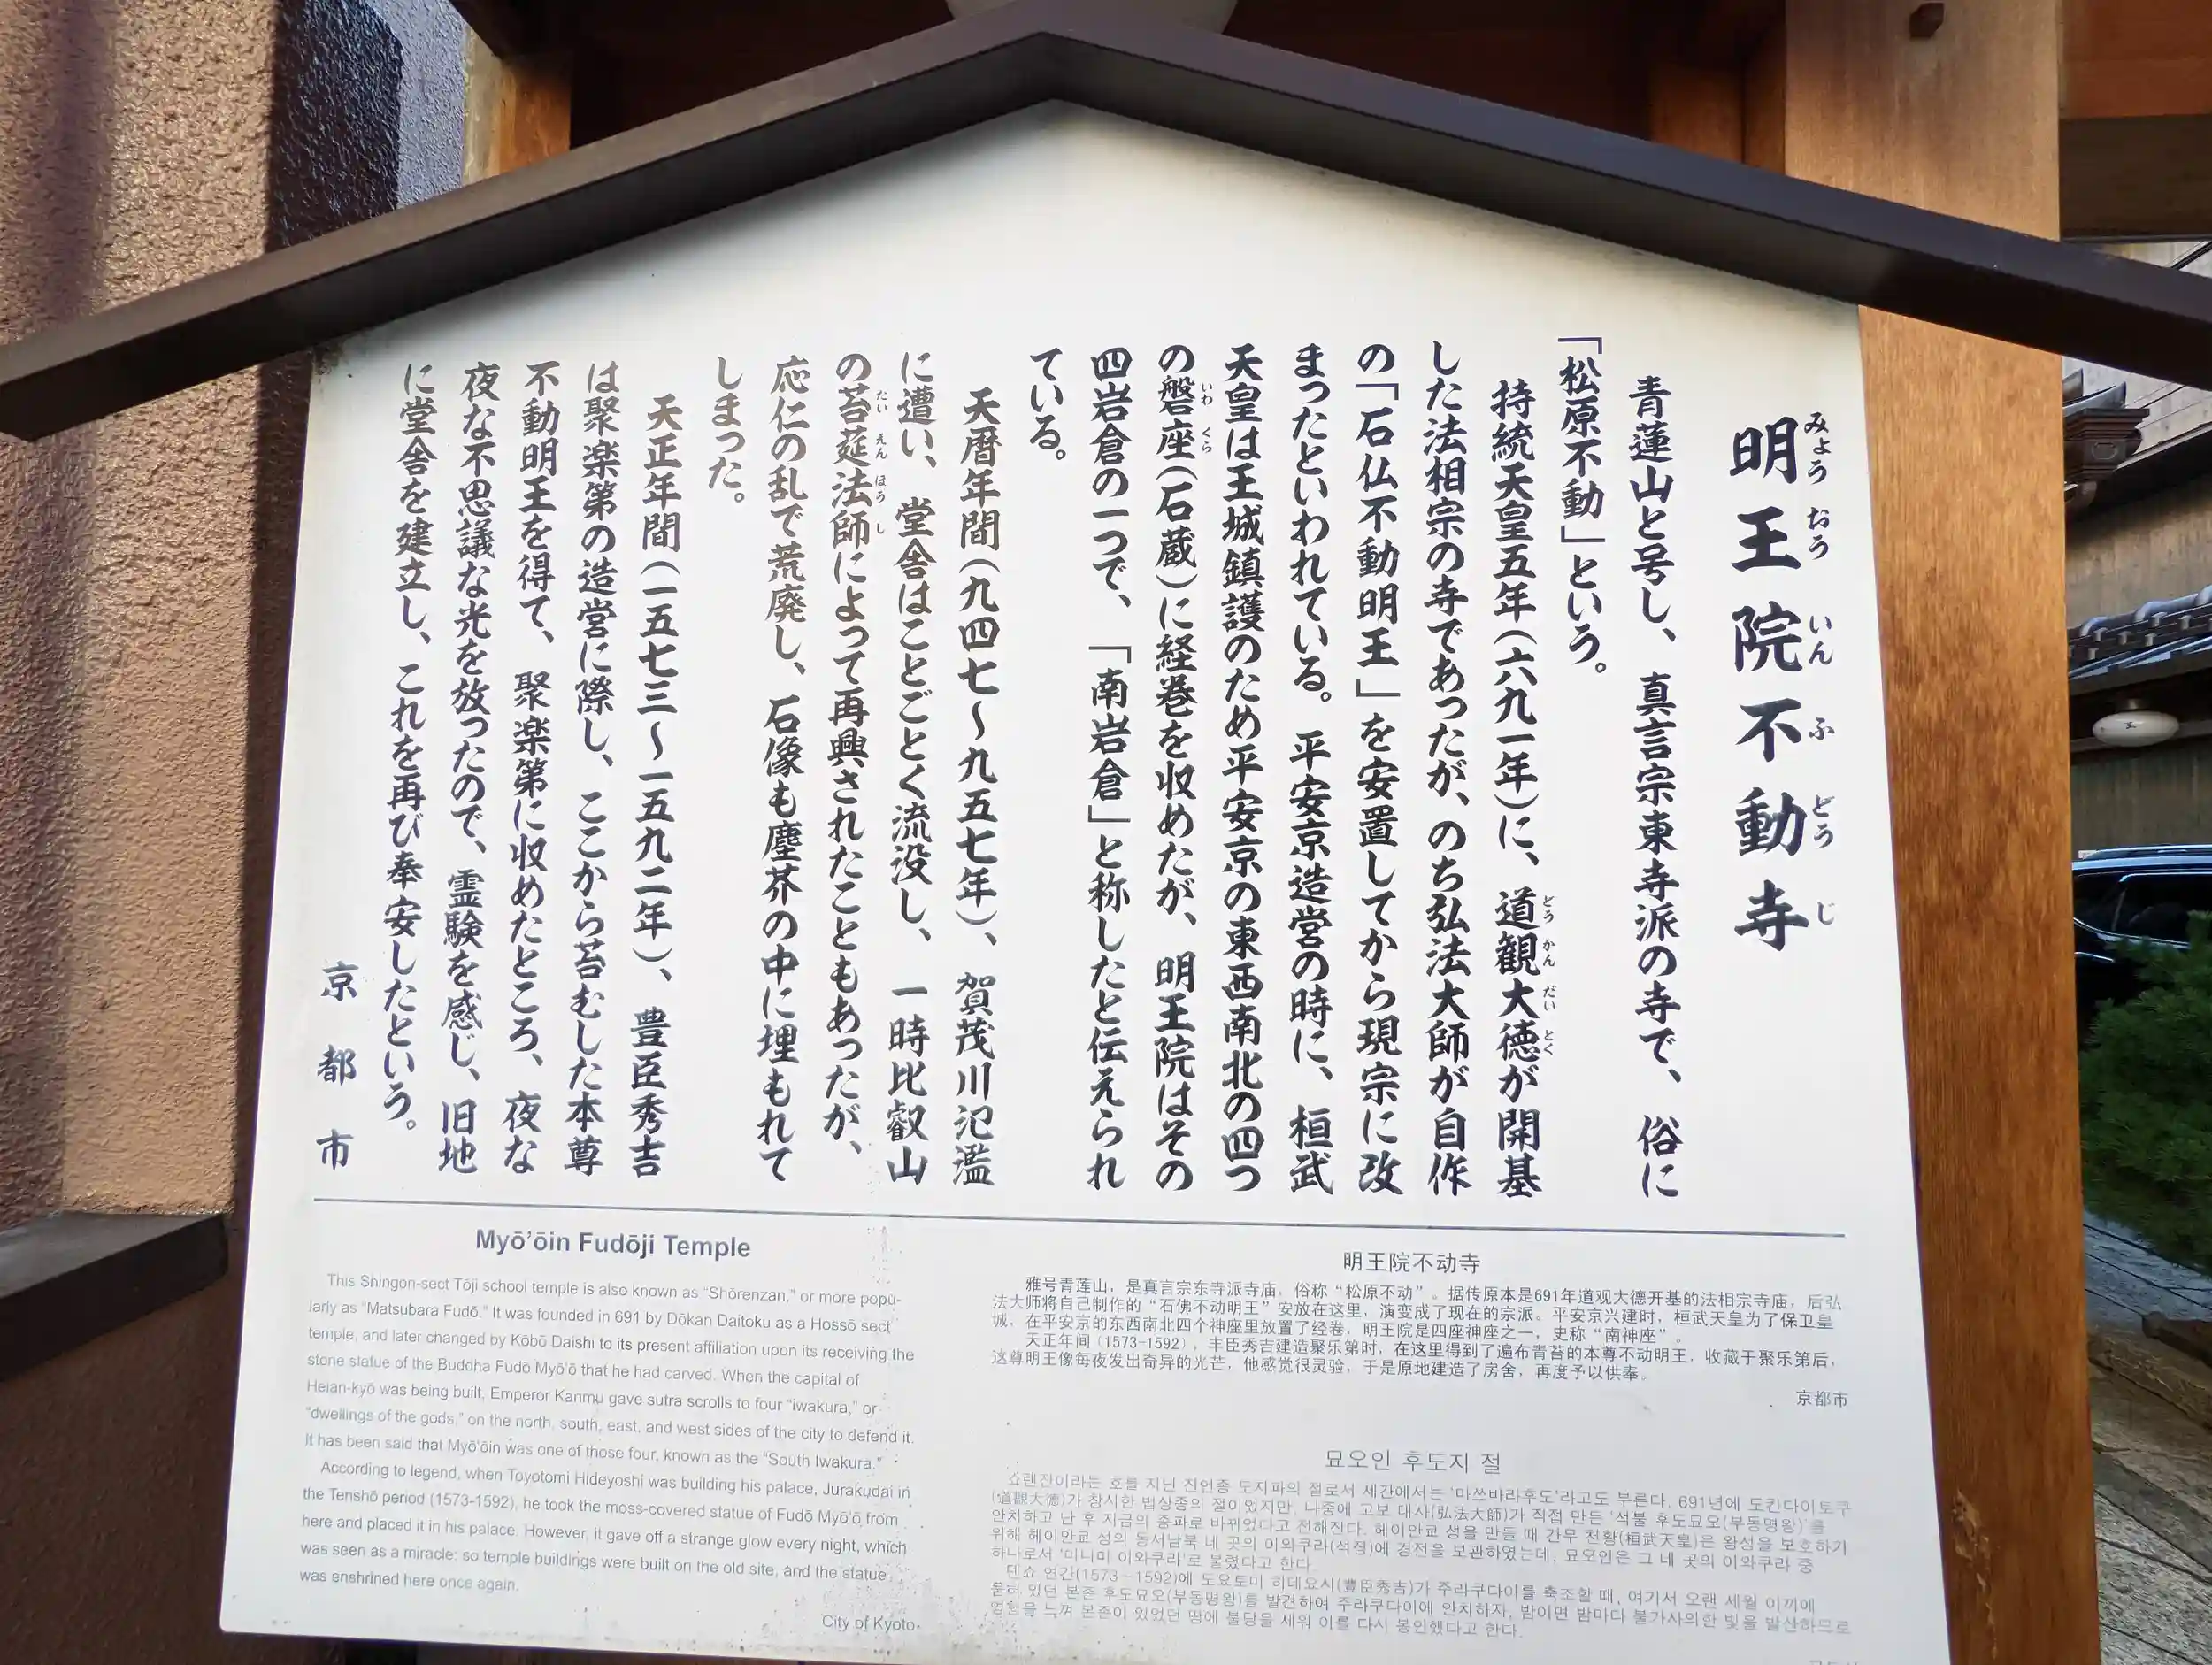 明王院不動寺
みょうおういんふどうじ
青蓮山と号し、真言宗東寺派の寺で、俗に
「松原不動」という。
持統天皇五年(六九一年)に、道観大徳が開基
どうかんだいとく
した法相宗の寺であったが、のち弘法大師が自作
の「石仏不動明王」を安置してから現宗に改
まったといわれている。平安京造営の時に、桓武
天皇は王城鎮護のため平安京の東西南北の四つ
の磐座(石蔵)に経巻を収めたが、明王院はその
いわくら
四岩倉の一つで、「南岩倉」と称したと伝えられ
ている。
天暦年間(九四七〜九五七年)、賀茂川氾濫
に遭い、堂舎はことごとく流没し、一時比叡山
の苔莚法師によって再興されたこともあったが、
たいえんほうし
応仁の乱で荒廃し、石像も塵芥の中に埋もれて
しまった。
天正年間(一五七三〜一五九二年)、豊臣秀吉
は聚楽第の造営に際し、ここから苔むした本尊
不動明王を得て、聚楽第に収めたところ、夜な
夜な不思議な光を放ったので、霊験を感じ、旧地
に堂舎を建立し、これを再び奉安したという。
京都市
Myō'ōin Fudōji Temple
This Shingon-sect Tōji school temple is also known as “Shōrenzan,” or more popu-
larly as “Matsubara Fudō.” It was founded in 691 by Dōkan Daitoku as a Hossō sect
temple, and later changed by Kōbō Daishi to its present affiliation upon its receiving the
stone statue of the Buddha Fudō Myō'ō that he had carved. When the capital of
Heian-kyō was being built, Emperor Kanmu gave sutra scrolls to four “iwakura,” or
“dwellings of the gods,” on the north, south, east, and west sides of the city to defend it.
It has been said that Myō'ōin was one of those four, known as the “South Iwakura.”
According to legend, when Toyotomi Hideyoshi was building his palace, Jurakudai in
the Tenshō period (1573-1592), he took the moss-covered statue of Fudō Myō'ō from
here and placed it in his palace. However, it gave off a strange glow every night, which
was seen as a miracle: so temple buildings were built on the old site, and the statue
was enshrined here once again.
City of Kyoto
明王院不动寺
雅号青莲山，是真言宗东寺派寺庙，俗称“松原不动”。据传原本是691年道观大德开基的法相宗寺庙，后弘
法大师将自己制作的“石佛不动明王”安放在这里，演变成了现在的宗派。平安京兴建时，桓武天皇为了保卫皇
城，在平安京的东西南北四个神座里放置了经卷，明王院是四座神座之一，史称“南神座”。
天正年间（1573-1592），丰臣秀吉建造聚乐第时，在这里得到了遍布青苔的本尊不动明王，收藏于聚乐第后，
这尊明王像每夜发出奇异的光芒，他感觉很灵验，于是原地建造了房舍，再度予以供奉。
京都市
묘오인 후도지 절
쇼렌잔이라는 호를 지닌 진언종 도지파의 절로서 세간에서는 '마쓰바라후도'라고도 부른다. 691년에 도칸다이토쿠
(道觀大徳)가 창시한 법상종의 절이었지만, 나중에 고보 대사(弘法大師)가 직접 만든 '석불 후도묘오(부동명왕)'를
안치하고 난 후 지금의 종파로 바뀌었다고 전해진다. 헤이안쿄 성을 만들 때 간무 천황(桓武天皇)은 왕성을 보호하기
위해 헤이안쿄 성의 동서남북 네 곳의 이와쿠라(석징)에 경전을 보관하였는데, 묘오인은 그 네 곳의 이와쿠라 중
하나로서 '미나미 이와쿠라'로 불렸다고 한다.
덴쇼 연간(1573~1592)에 도요토미 히데요시(豊臣秀吉)가 주라쿠다이를 축조할 때, 여기서 오랜 세월 이끼에
묻혀 있던 본존 후도묘오(부동명왕)를 발견하여 주라쿠다이에 안치하자, 밤이면 밤마다 불가사의한 빛을 발산하므로
영험을 느껴 본존이 있었던 땅에 불당을 세워 이를 다시 봉인했다고 한다.